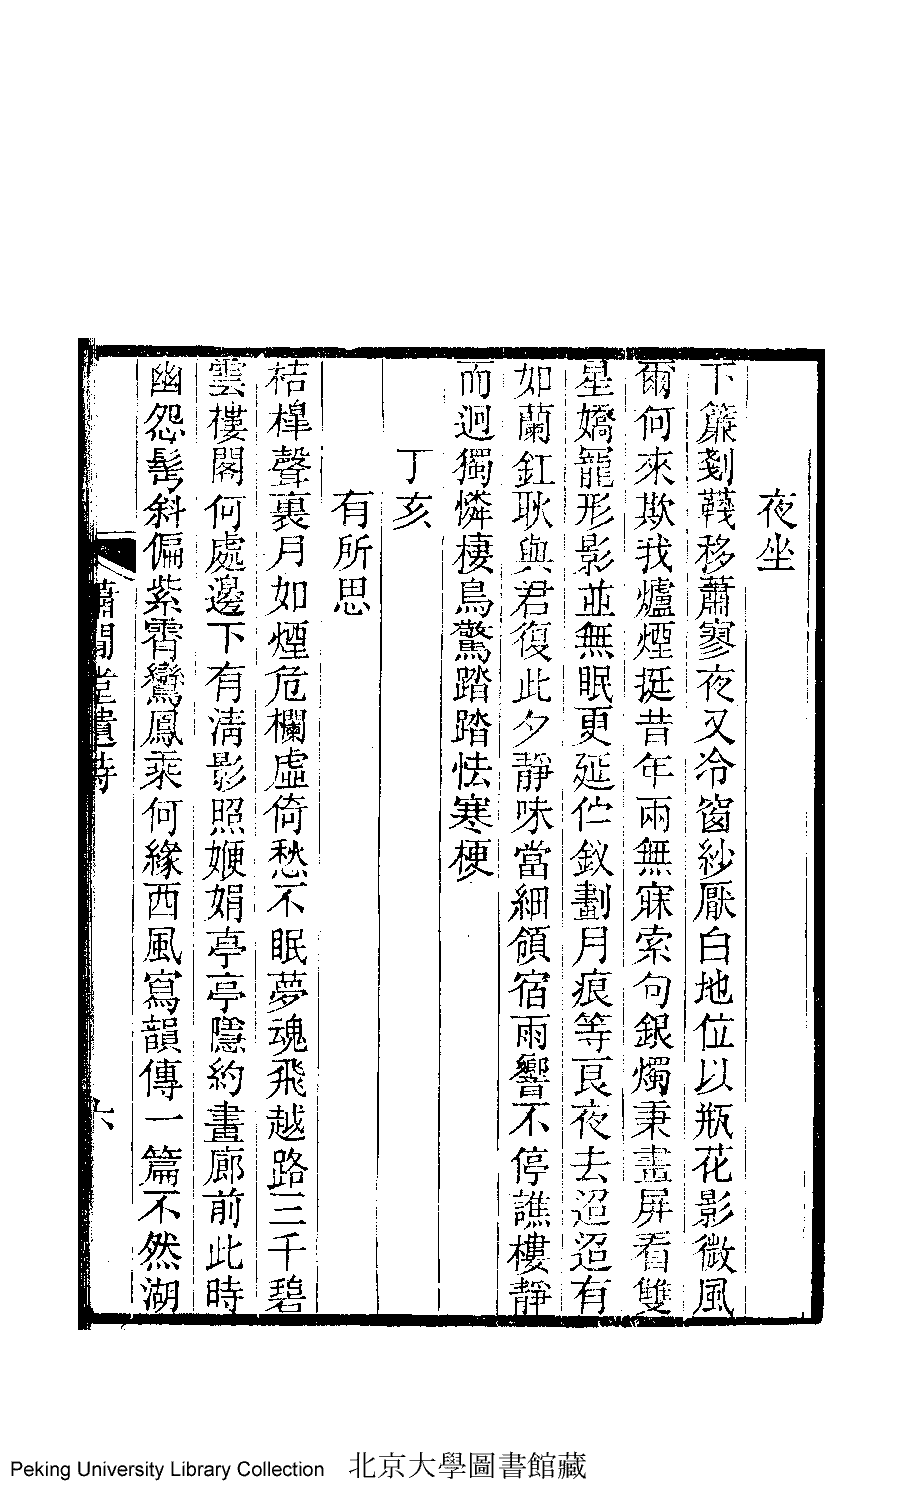 夜坐
下簾剗韈移蕭寥夜又冷窗紗厭白地位以瓶花影微風
爾何來欺我爐煙挺昔年兩無寐索句銀燭秉畫屏看雙
星嬌寵形影並無眠更延伫釵劃月痕等良夜去迢迢有
如蘭釭耿與君復此夕靜味當細領宿雨響不停譙樓靜
而迥獨憐棲鳥驚踏踏怯寒梗
丁亥
有所思
桔槔聲裏月如煙危欄虛倚愁不眠夢魂飛越路三千碧
雲樓閣何處邊下有清影照嬋娟亭亭隱約畫廊前此時
幽怨髩斜偏紫霄鸞鳳乘何緣西風寫韻傳一篇不然湖
蕭閒堂遺詩
六
Peking University Library Collection 北京大學圖書館藏